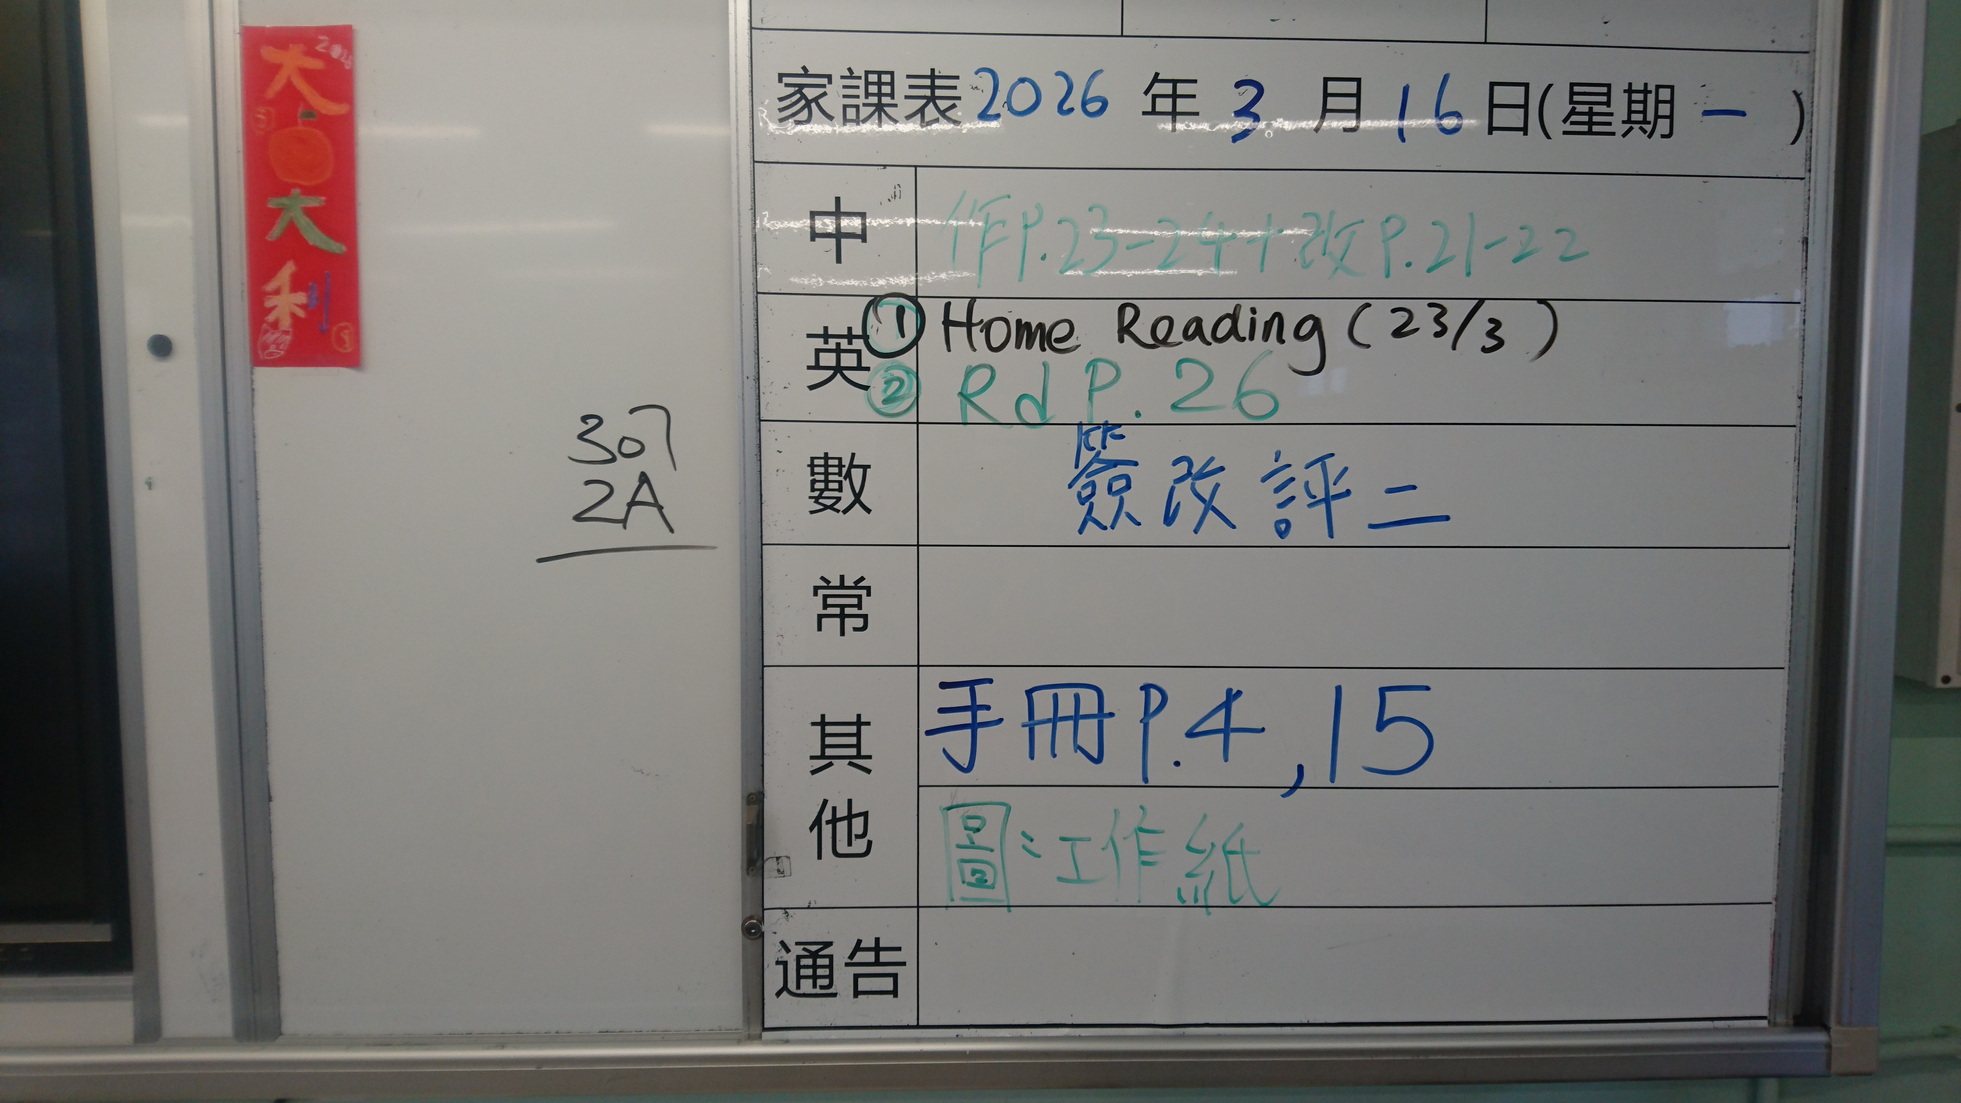 大大利
307
2A
家課表2026年3月16日(星期一)
中 作P.23-24+改P.21-22
英 ① Home Reading (23/3)
② Rd P.26
數 簽改評二
常
其他 手冊P.4,15
圖:工作紙
通告